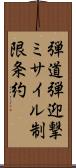 弾道弾迎撃
ミサイル制
限条約